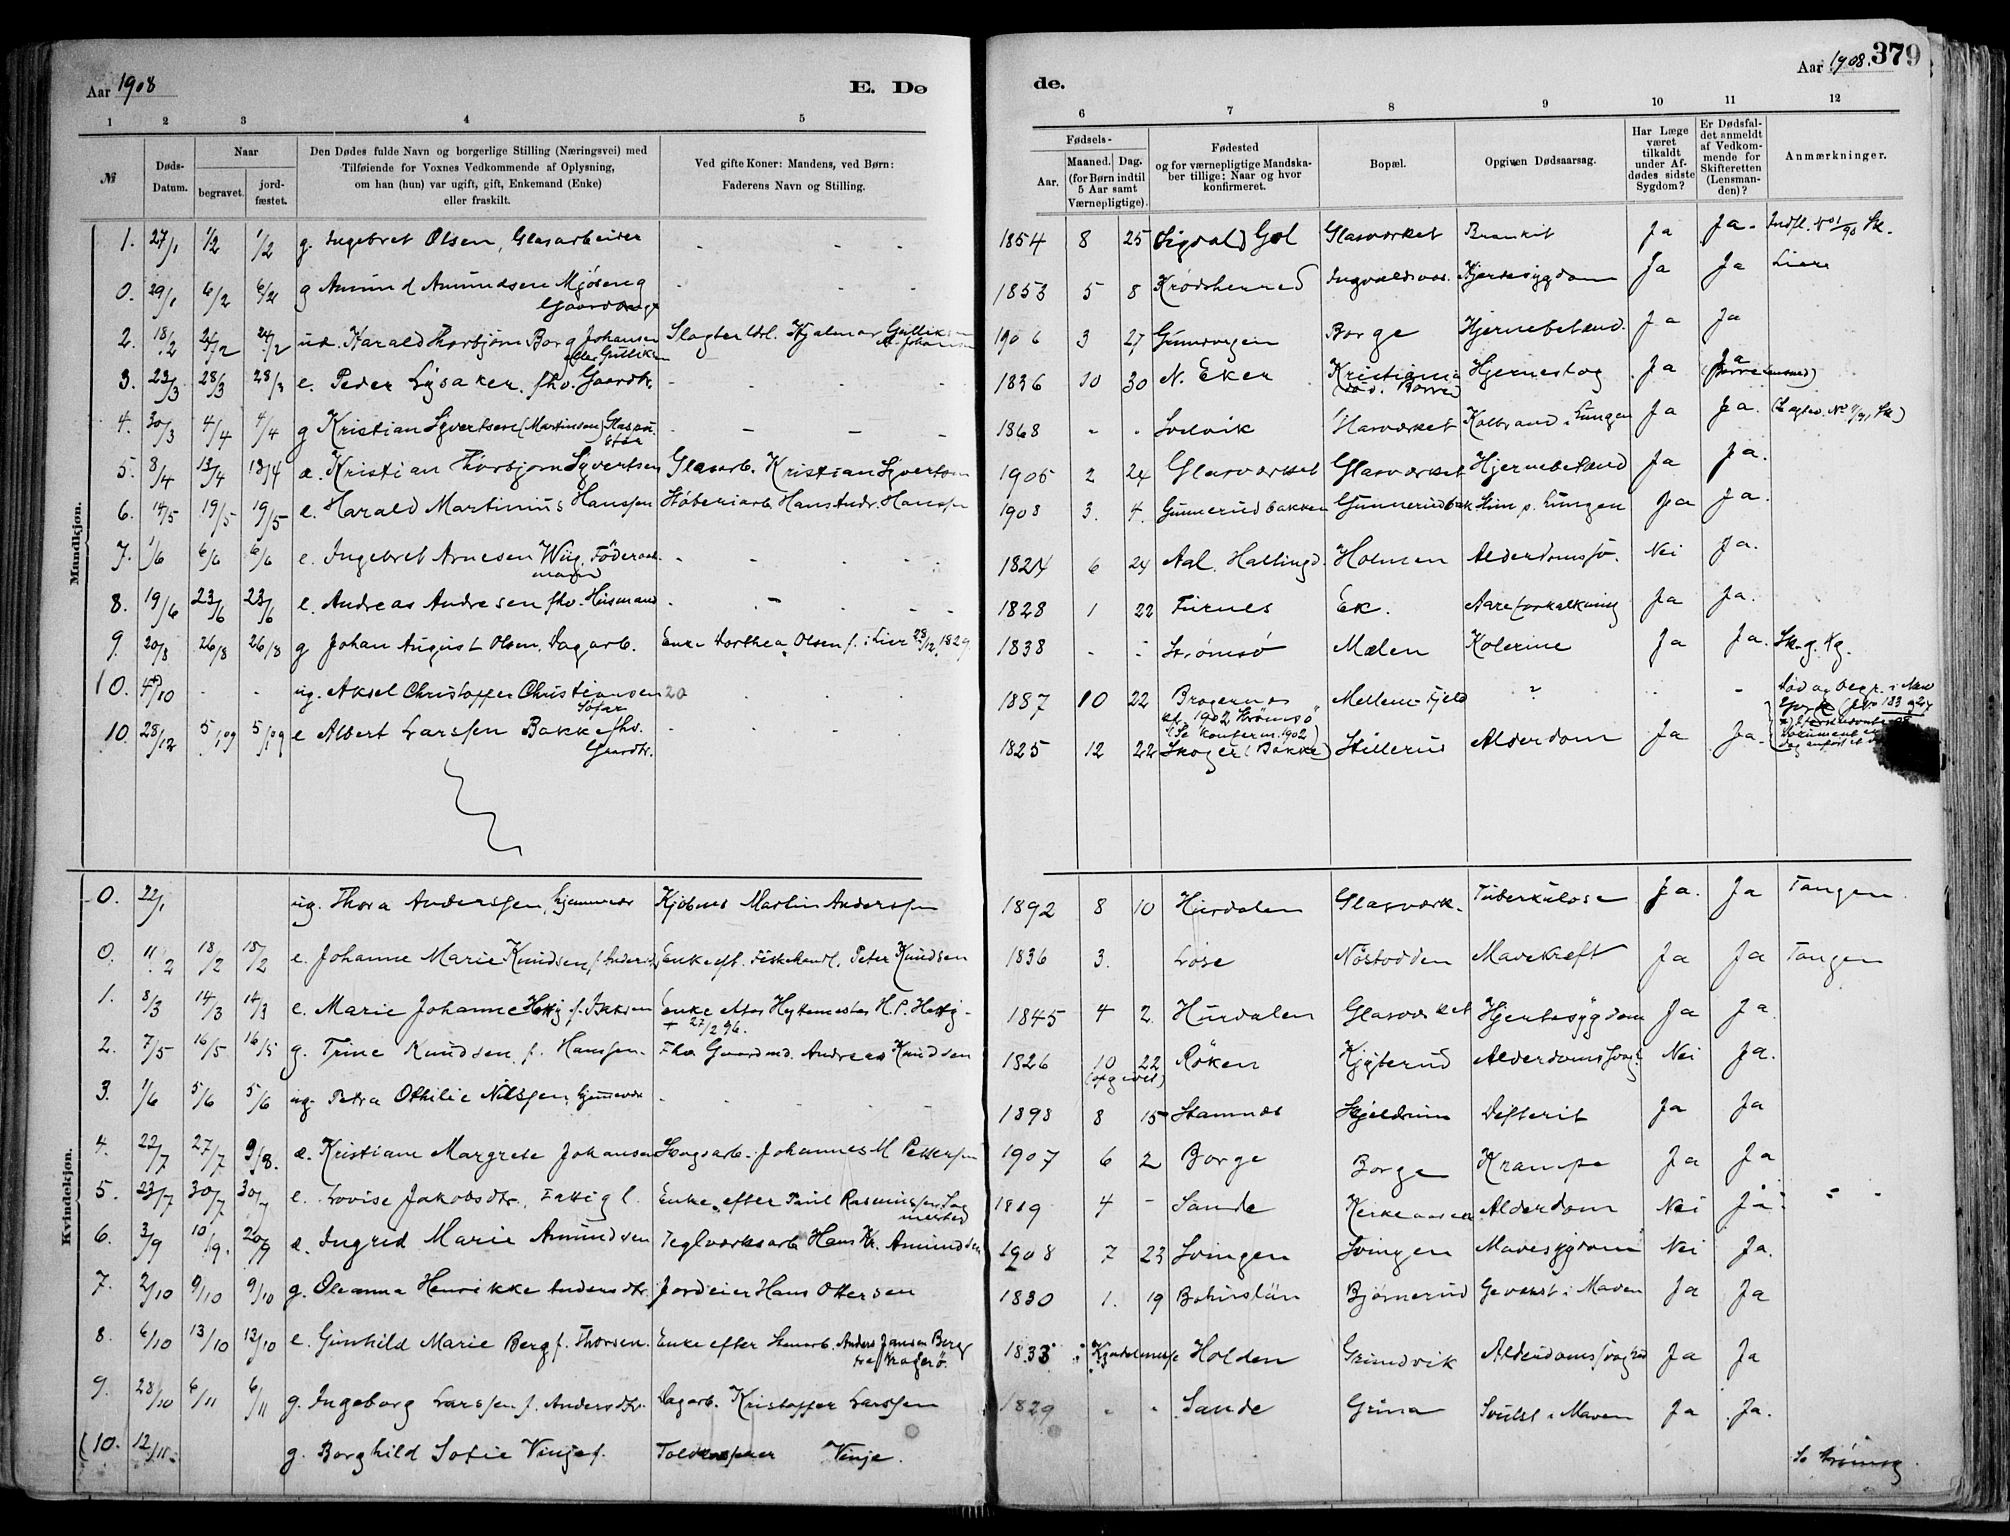 Aar 1908 E. Dø
de. Aar 1908. 379
1 2 3 4 5
6 7 8 9 10 11 12
№
Døds-Datum.
Naar
begravet. jordfæstet.
Den Dødes fulde Navn og borgerlige Stilling (Næringsvei) med
Tilføiende for Voxnes Vedkommende af Oplysning,
om han (hun) var ugift, gift, Enkemand (Enke)
eller fraskilt.
Ved gifte Koner: Mandens, ved Børn:
Faderens Navn og Stilling.
Fødsels-
Aar. Maaned. Dag.
(for Børn indtil
5 Aar samt
Værnepligtige).
Fødested
og for værnepligtige Mandska-
ber tillige: Naar og hvor
konfirmeret.
Bopæl.
Opgiven Dødsaarsag.
Har Læge
været
tilkaldt
under Af-
dødes sidste
Sygdom?
Er Dødsfal-
det anmeldt
af Vedkom-
mende for
Skifteretten
(Lensman-
den)?
Anmærkninger.
Mandkjøn.
1. 27/1 1/2 1/2 g. Ingebret Olsen, Glasarbeider - - - 1854 8 25 Sigdal Glasværket Bronkit Ja Ja.
0. 29/1 6/2 6/2 g Amund Amundsen Mjøseng - - - 1853 5 8 Krødsherred Hjertesygdom Ja Ja Liere
2. 18/2 26/2 24/2 Karald Thorbjørn Borg Johansen Hjalmar 1906 3 27 Borge Hjernebetænd. Ja Ja
eller Gulliksen
3. 23/3 28/3 28/3 e. Peder Lysaker. fhv. Gaardbr. - - - 1836 10 30 N. Eker Kristiania Hjerneslag Ja Ja
4. 30/3 4/4 4/4 g Kristian Syvertsen (Martinsen) - - - 1868 - - Svelvik Glasværket Koldbrand i Lungen Ja Ja.
5. 8/4 13/4 13/4 æ. Kristian Thorbjørn Syvertsen Glasarb. Kristian Syvertsen 1905 2 24 Glasværket Glasværket Hjernebetænd Ja Ja.
6. 14/5 19/5 19/5 e. Harald Martinius Hanssen Støberiarb. Hans Andr. Hanssen 1908 3. 4. Gunnerudbakken Gunnerudbak Lungen Ja Ja.
7. 1/6 6/6 6/6 e. Ingebret Arnesen Wiig. Föderaads- - - - 1824 6 24 Aal. Hallingd. Holmen Alderdomssv. Nei Ja.
mand
8. 19/6 23/6 23/6 e. Andreas Andresen fhv. Husmand - - - 1828 1 22 Furnes Ek. Aareforkalkning Ja Ja.
9 20/8 26/8 26/8 g Johan August Olsen, Dagarb. Enke Dorthea Olsen f. i Lier 28/12 1829 1838 - - Strømsö Mælen Kolerine Ja Ja.
10. 4/10 - - ug. Aksel Christoffer Christiansen 20 - - 1887 10 22 Bragernes Mellem-Fjeld ? - -
Sjømand kf. 1902 Strømsö
(Se Konferm. 1902)
10. 28/12 5/1 09 5/1 09 e Albert Larssen Bakke fhv. - - - 1825 12 22 Skoger (Bakke) Stillerud Alderdom Ja Ja.
Gaardbr.
Kvindekjøn.
0. 22/1 ug. Thora Anderssen, hjemmevær Kjøbm. Martin Anderssen 1892 8 10 Hurdalen Glasværk. Tuberkulose Ja. Ja Tangen
0. 11/2 18/2 18/2 e. Johanne Marie Knudsen f. Andersd. Enke eft. Fiskehandl. Peter Knudsen 1836 3. Nöstodden Mavekræft Ja Ja Tangen
1. 8/3 14/3 14/3 e. Marie Johanne Hettig Enke efter Hyttemester H. P. Hettig. 1845 4 2 Hurdalen Glasværket Hjertesygdom Ja Ja
+ 27/2 96.
2. 7/5 16/5 16/5 g. Trine Knudsen f. Hanssen. Fhv. Gaardmd. Andreas Knudsen 1826 10 22 Røken Kjøsterud Alderdomssvagh. Nei Ja.
(opgivet)
3. 1/6 5/6 5/6 ug. Petra Othilie Nilssen, hjemmevær - - - 1898 8 15 Stamnes Skjeldrum Difterit Ja Ja
4. 22/7 27/7 9/8. æ. Kristiane Margrete Johansen Johannes M Pettersen 1907 6 2 Borge Borge Krampe Ja Ja
5. 23/7 30/7 30/7 e. Lovise Jakobsdtr. Fattigl. Enke efter Paul Rasmussen 1819 4 - Sande Alderdom Nei Ja.
6. 3/9 10/9. 20/9 æ. Ingrid Marie Amundsen Teglværksarb Hans Kr. Amundsen 1908 7 23 Svingen Svingen Mavesygdom Nei Ja.
7. 2/10 9/10 9/10 g. Oleanna Henrikke Andersdtr. Jordeier Hans Ottersen 1830 1. 19 Bohuslän Bjørnerud Gevækst i Maven Ja Ja
8. 6/10 13/10 13/10 e. Gunhild Marie Berg f. Thorsen. Enke efter Anders Jansen Berg 1833 Holden Grundvik Alderdomssvaghed Ja Ja
fra Kragerö.
9. 28/10 6/11 6/11 g. Ingeborg Larssen f. Andersdtr. Dagarb. Kristoffer Larssen 1829 - - Sande Grina Svulst i Maven Ja Ja.
(10. 12/11 g. Borghild Sofie Vinje f. Vinje. Se Strømsø